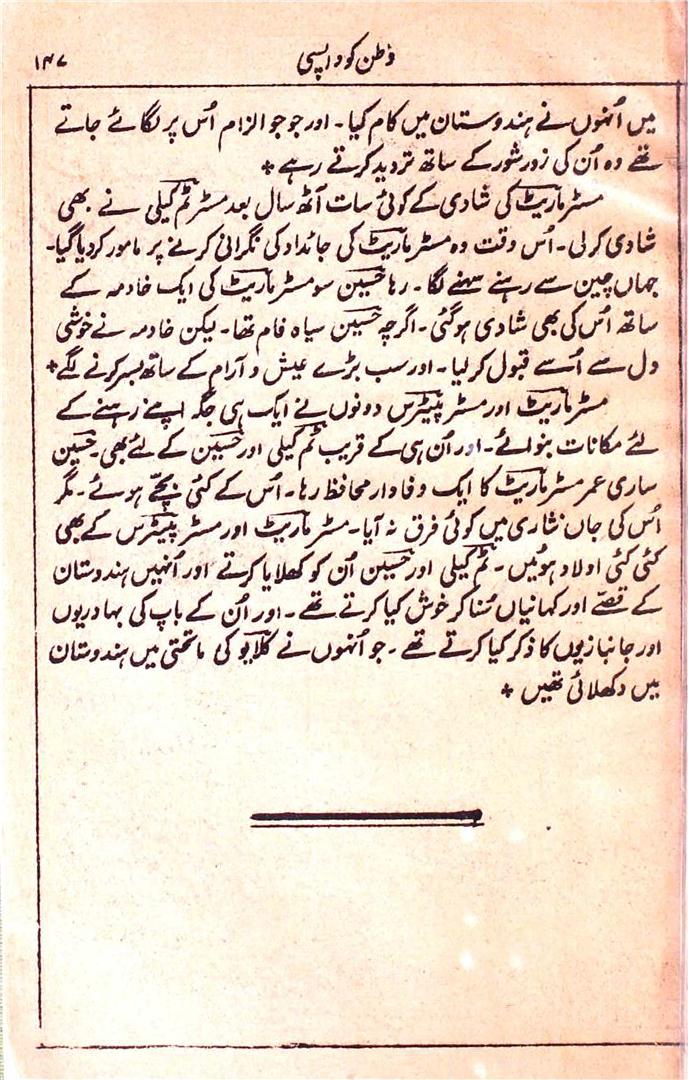 وطن کو واپسی ۱۴۷
میں اُنہوں نے ہندوستان میں کام کیا۔ اور جو جو الزام اُس پر لگائے جاتے
تھے وہ اُن کی زور شور کے ساتھ تردید کرتے رہے *
مسٹر ماریٹ کی شادی کے کوئی سات آٹھ سال بعد مسٹر ٹم کیلی نے بھی
شادی کر لی۔ اُس وقت وہ مسٹر ماریٹ کی جائداد کی نگرانی کرنے پر مامور کر دیا گیا۔
جہاں چین سے رہنے سہنے لگا۔ رہا حسین سو مسٹر ماریٹ کی ایک خادمہ کے
ساتھ اُس کی بھی شادی ہو گئی۔ اگرچہ حسین سیاہ فام تھا۔ لیکن خادمہ نے خوشی
دل سے اُسے قبول کر لیا۔ اور سب بڑے عیش و آرام کے ساتھ بسر کرنے لگے*
مسٹر ماریٹ اور مسٹر پیٹرس دونوں نے ایک ہی جگہ اپنے رہنے کے
لئے مکانات بنوائے۔ اور اُن ہی کے قریب ٹم کیلی اور حسین کے لئے بھی۔ حسین
ساری عمر مسٹر ماریٹ کا ایک وفادار محافظ رہا۔ اُس کے کئی بچّے ہوئے۔ مگر
اُس کی جاں نثاری میں کوئی فرق نہ آیا۔ مسٹر ماریٹ اور مسٹر پیٹرس کے بھی
کئی کئی اولاد ہوئیں۔ ٹم کیلی اور حسین اُن کو کھلایا کرتے اور اُنہیں ہندوستان
کے قصّے اور کہانیاں سُنا کر خوش کیا کرتے تھے۔ اور اُن کے باپ کی بہادریوں
اور جانبازیوں کا ذکر کیا کرتے تھے۔ جو اُنہوں نے کلایو کی ماتحتی میں ہندوستان
میں دکھلائی تھیں *